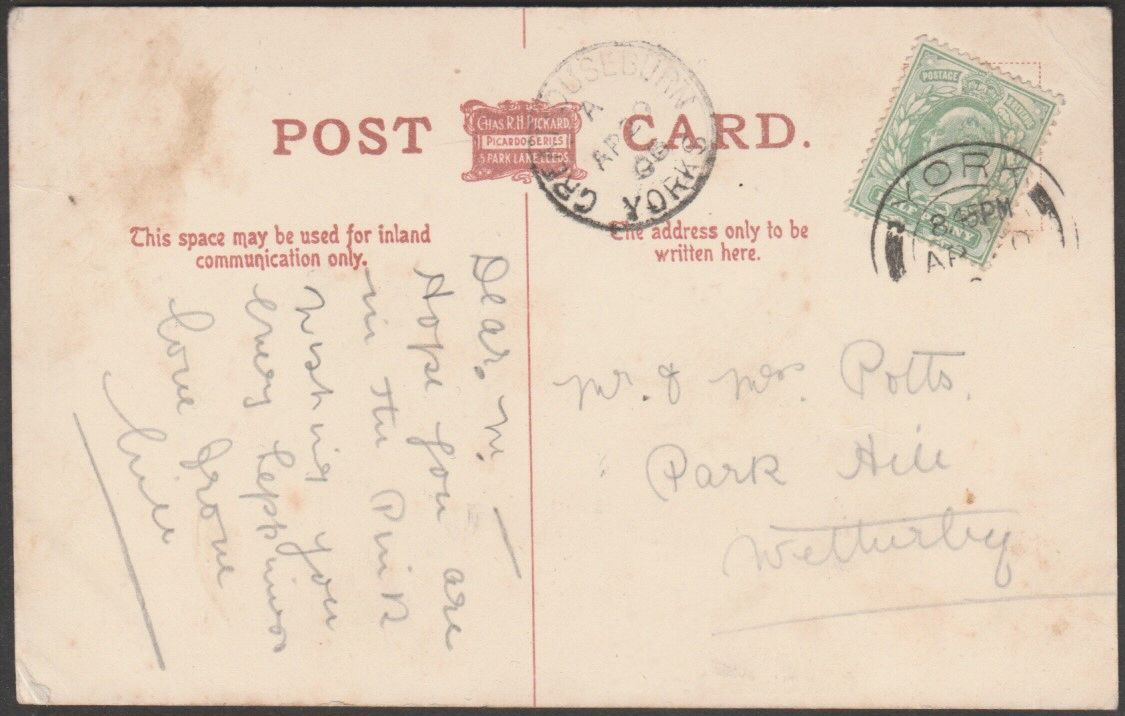 POST CARD.
CHAS. R. H. PICKARD,
PICARDO SERIES
5 PARK LANE LEEDS.
This space may be used for inland
communication only.
The address only to be
written here.
GREAT OUSEBURN
A
AP 20
06
YORKS
POSTAGE
YORK
8.45PM
AP
Dear. N.
Hope you are
in the Pink
wishing you
every
love from
Mr. & Mrs Potts.
Park Hill
Wetherby